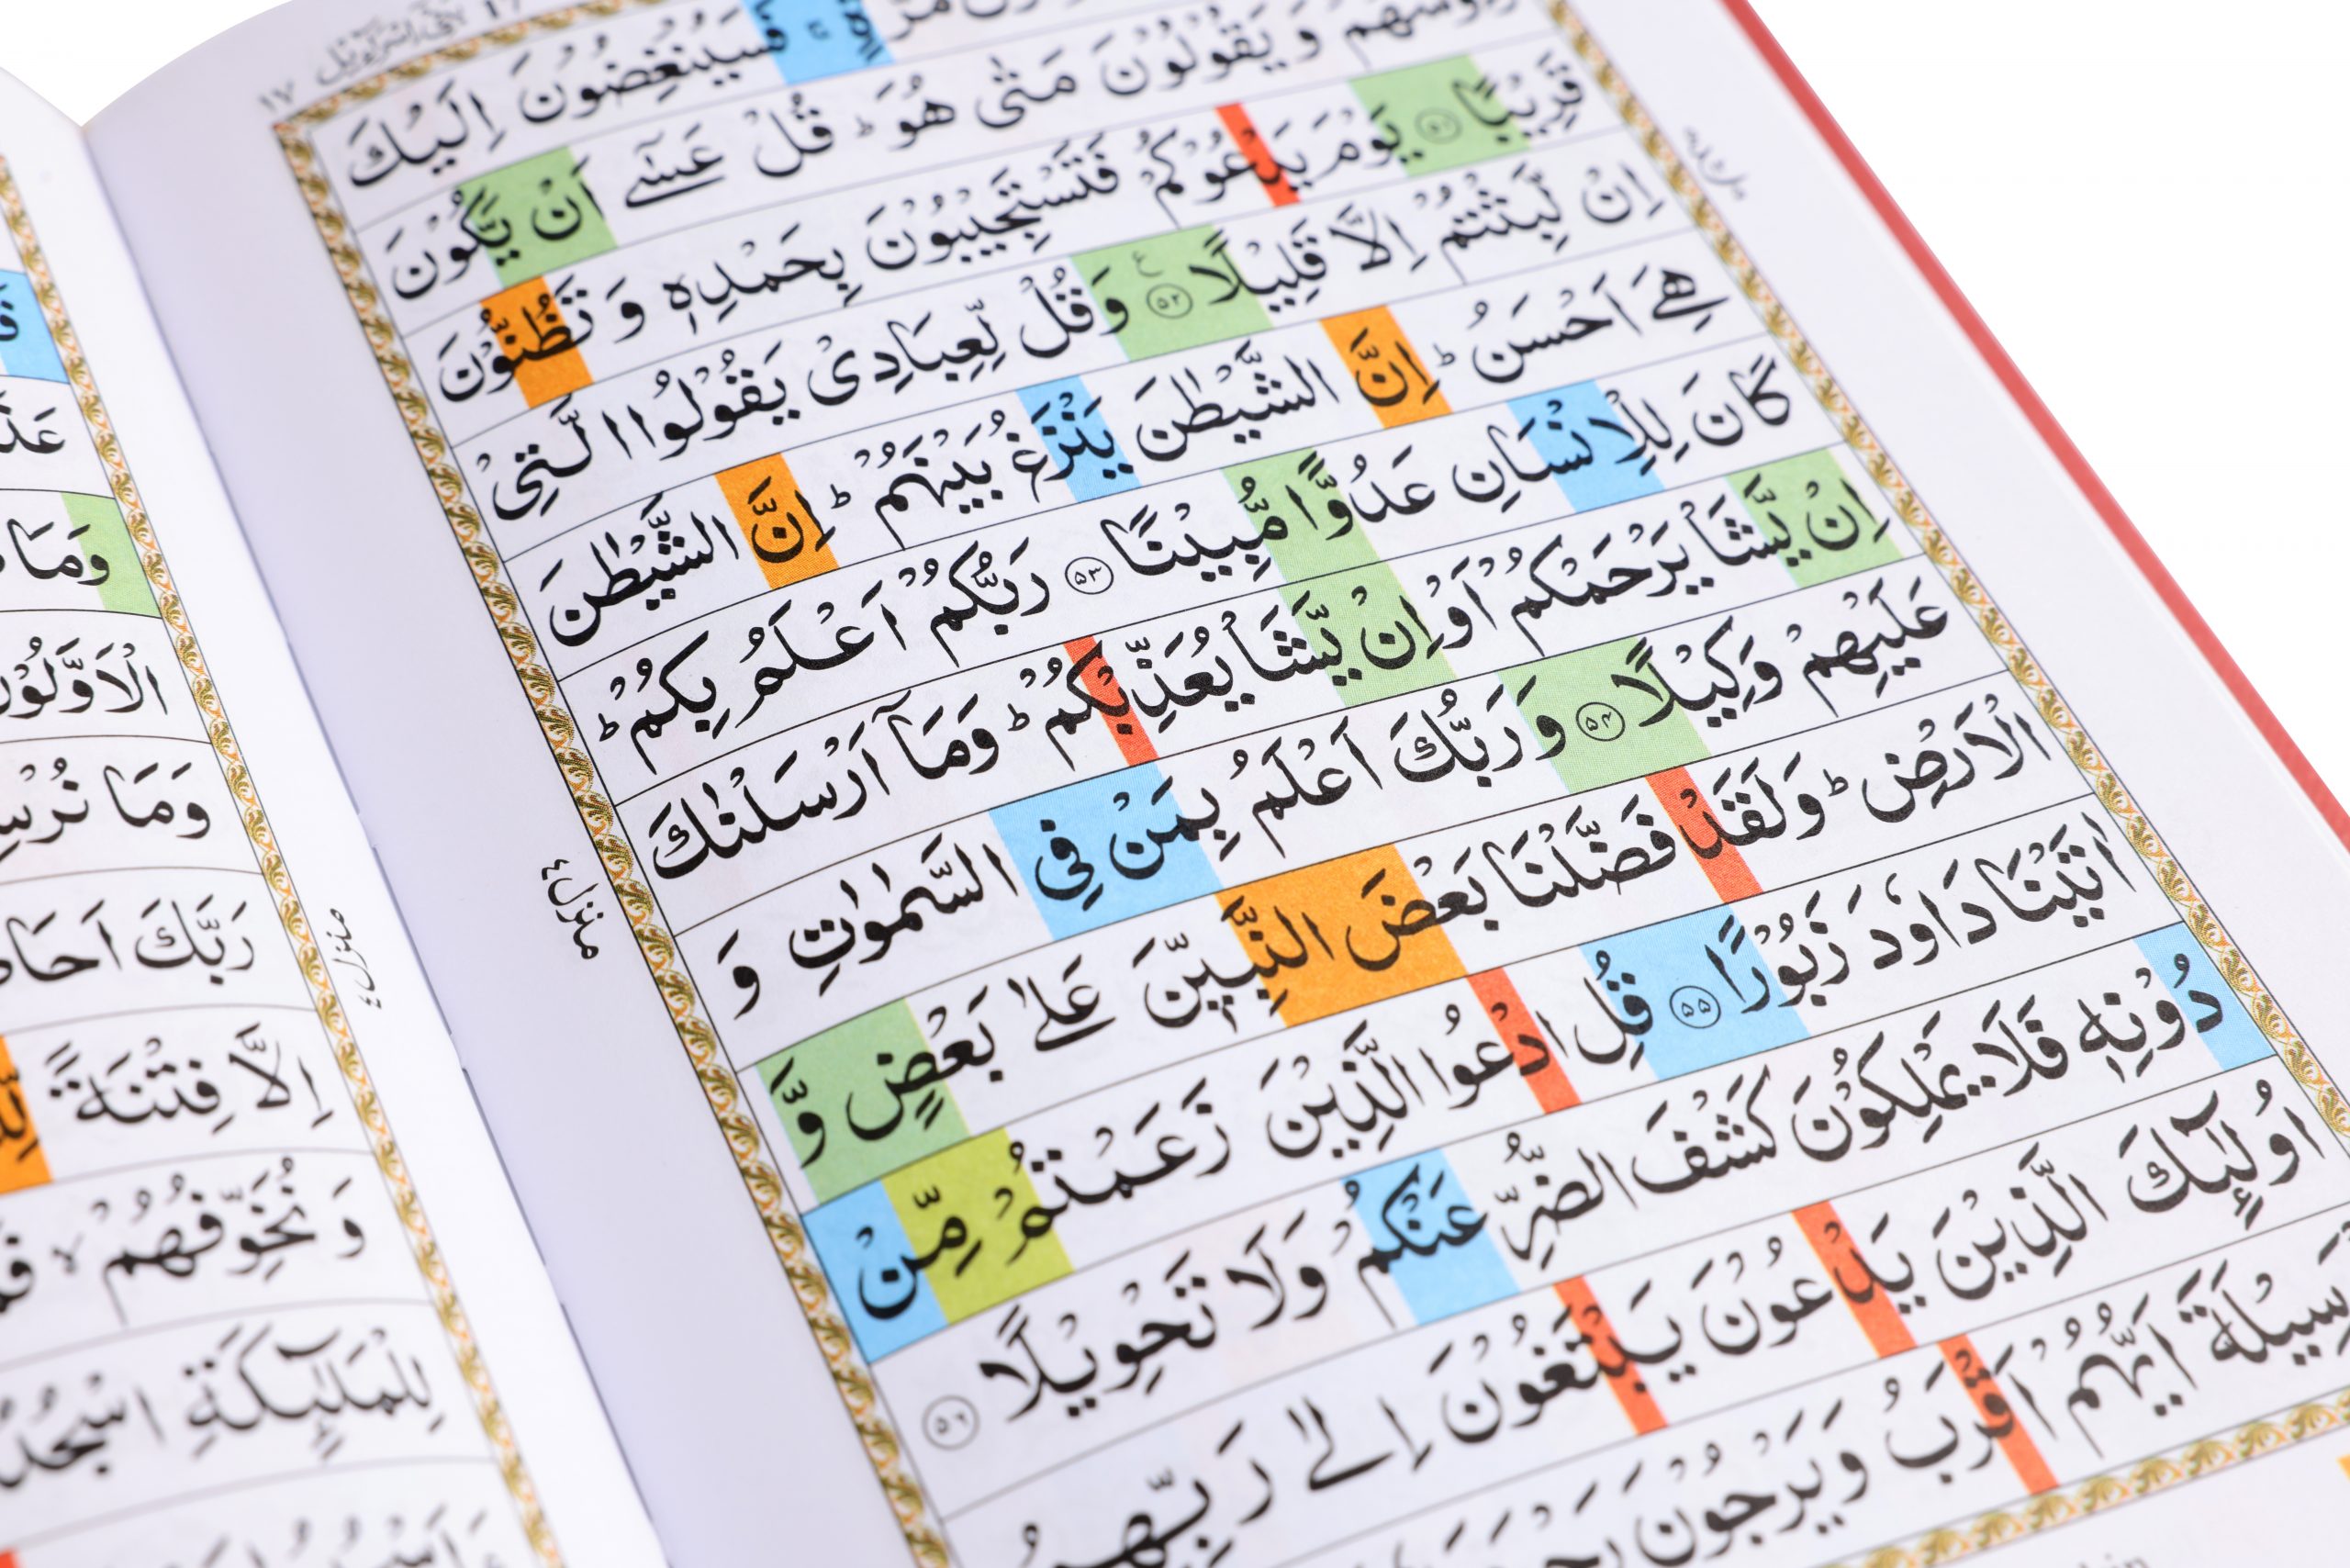 بنی اسرآءیل ١٧
فَسَيُنْغِضُوْنَ اِلَيْكَ
رُءُوْسَهُمْ وَ يَقُوْلُوْنَ مَتٰى هُوَ ؕ قُلْ عَسٰۤى اَنْ يَّكُوْنَ
قَرِيْبًا ۝٥١ يَوْمَ يَدْعُوْكُمْ فَتَسْتَجِيْبُوْنَ بِحَمْدِهٖ وَ تَظُنُّوْنَ
اِنْ لَّبِثْتُمْ اِلَّا قَلِيْلًا ۝٥٢ ع وَقُلْ لِّعِبَادِىْ يَقُوْلُوا الَّتِىْ
هِىَ اَحْسَنُ ؕ اِنَّ الشَّيْطٰنَ يَنْزَغُ بَيْنَهُمْ ؕ اِنَّ الشَّيْطٰنَ
كَانَ لِلْاِنْسَانِ عَدُوًّا مُّبِيْنًا ۝٥٣ رَبُّكُمْ اَعْلَمُ بِكُمْ ؕ
اِنْ يَّشَاْ يَرْحَمْكُمْ اَوْ اِنْ يَّشَاْ يُعَذِّبْكُمْ ؕ وَمَاۤ اَرْسَلْنٰكَ
عَلَيْهِمْ وَكِيْلًا ۝٥٤ وَ رَبُّكَ اَعْلَمُ بِمَنْ فِى السَّمٰوٰتِ وَ
الْاَرْضِ ؕ وَلَقَدْ فَضَّلْنَا بَعْضَ النَّبِيّٖنَ عَلٰى بَعْضٍ وَّ
اٰتَيْنَا دَاوٗدَ زَبُوْرًا ۝٥٥ قُلِ ادْعُوا الَّذِيْنَ زَعَمْتُمْ مِّنْ
دُوْنِهٖ فَلَا يَمْلِكُوْنَ كَشْفَ الضُّرِّ عَنْكُمْ وَلَا تَحْوِيْلًا ۝٥٦
اُولٰٓئِكَ الَّذِيْنَ يَدْعُوْنَ يَبْتَغُوْنَ اِلٰى رَبِّهِمُ
اَيُّهُمْ اَقْرَبُ وَيَرْجُوْنَ
منزل ٤
وَمَا
الْاَوَّلُوْنَ
وَمَا نُرْسِلُ
رَبَّكَ اَحَاطَ
اِلَّا فِتْنَةً
وَ نُخَوِّفُهُمْ ۙ
لِلْمَلٰٓئِكَةِ اسْجُدُوْا
منزل ٤